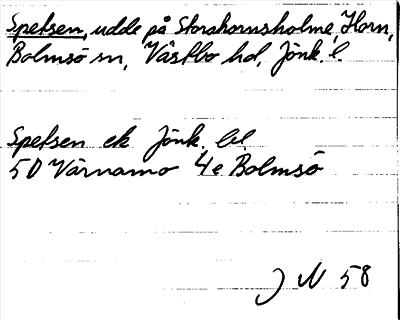 Spetsen, udde på Storahornsholme, Horn,
Bolmsö sn, Västbo hd, Jönk. l.
Spetsen ek Jönk. bl.
5D Värnamo 4e Bolmsö
J N 58